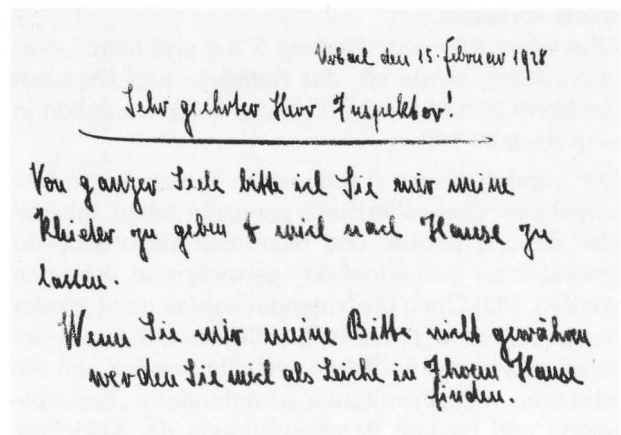 Urbach den 15. Februar 1928
Sehr geehrter Herr Inspektor.
Von ganzer Seele bitte ich Sie mir meine
Kleider zu geben & mich nach Hause zu
lassen.
Wenn Sie mir meine Bitte nicht gewähren
werden Sie mich als Leiche in Ihrem Hause
finden.